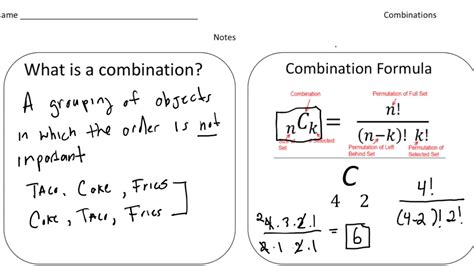 ame
Combinations
Notes
What is a combination?
A grouping of objects
in which the order is not
important
Taco, Coke, Fries
Coke, Taco, Fries
Combination Formula
Combination
Permutation of Full Set
nCk = n! / (n–k)! k!
Set
Selected
Permutation of Left
Behind Set
Permutation of
Selected Set
4 C 2
4! / (4-2)! 2!
4·3·2·1 / 2·1 2·1 = 6